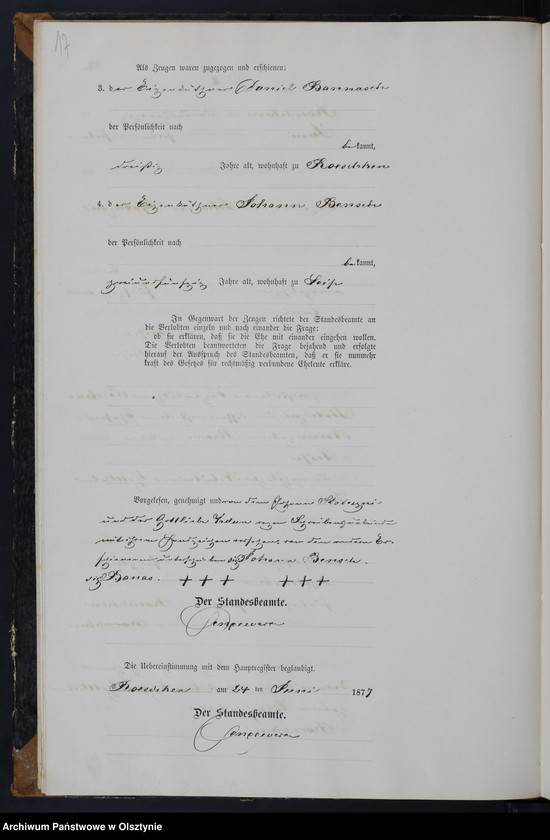 17
Als Zeugen waren zugezogen und erschienen:
3. der Eigenkäthner Daniel Bannasch
der Persönlichkeit nach
bekannt,
dreißig Jahre alt, wohnhaft zu Roeschken
4. der Eigenkäthner Johann Bensch
der Persönlichkeit nach
bekannt,
zweiundfünfzig Jahre alt, wohnhaft zu
In Gegenwart der Zeugen richtete der Standesbeamte an
die Verlobten einzeln und nach einander die Frage:
ob sie erklären, daß sie die Ehe mit einander eingehen wollen.
Die Verlobten beantworteten die Frage bejahend und erfolgte
hierauf der Ausspruch des Standesbeamten, daß er sie nunmehr
kraft des Gesetzes für rechtmäßig verbundene Eheleute erkläre.
Vorgelesen, genehmigt und von dem Johann
und der Gottliebe wegen Schreibensunkunde
mit ihren Handzeichen versehen, von den andern Er-
schienenen unterschrieben. Johann Bensch.
+ + + + + +
Der Standesbeamte.
Die Uebereinstimmung mit dem Hauptregister beglaubigt.
Roeschken am 24 ten Juni 1877
Der Standesbeamte.
Archiwum Państwowe w Olsztynie